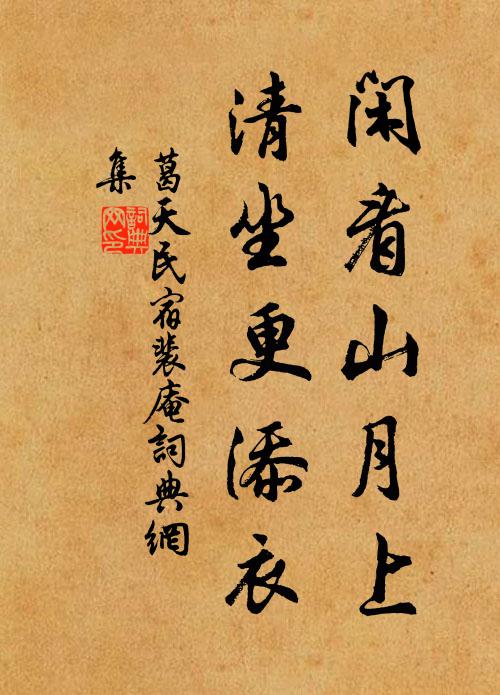 闲看山月上
清坐更添衣
葛天民宿裴庵詞典網
集
詞典
网印